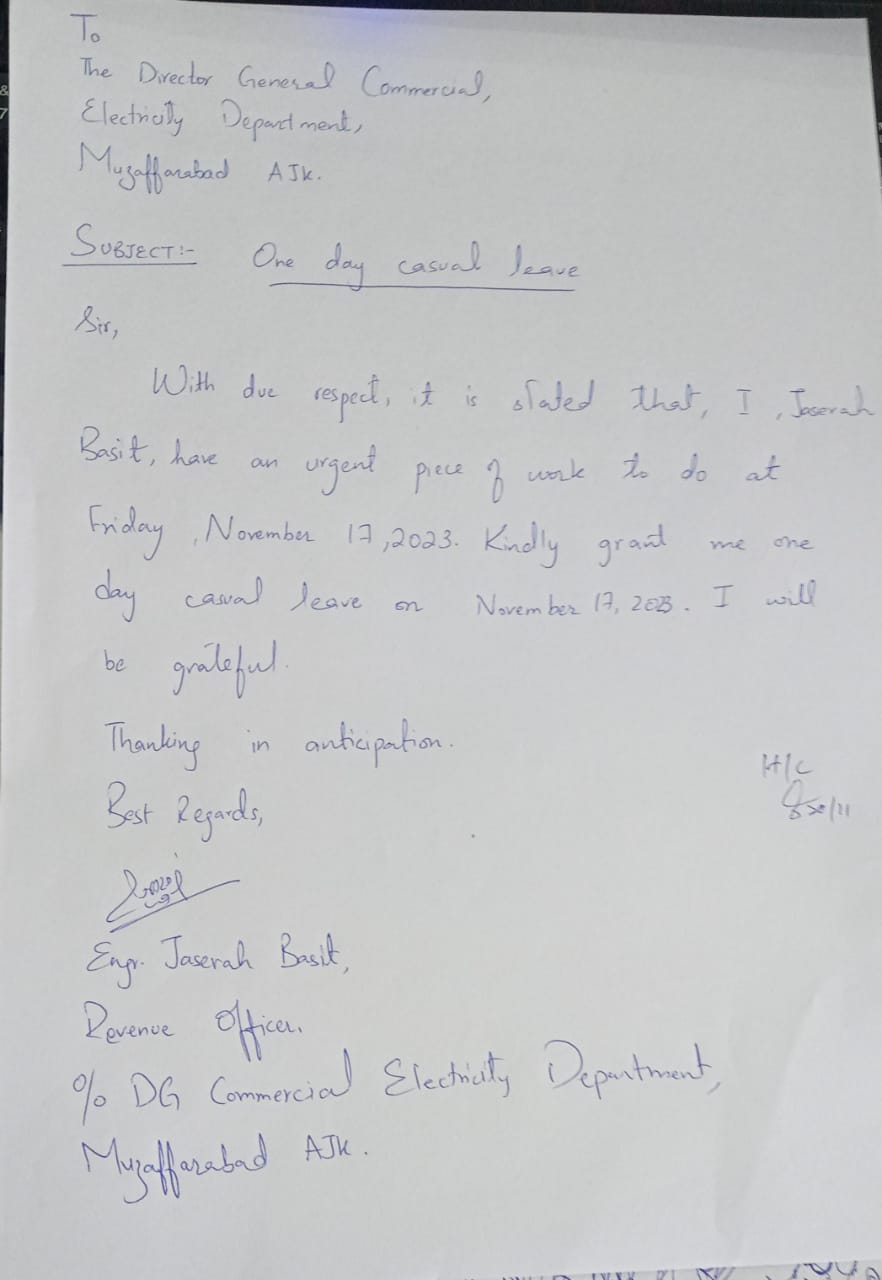 To
The Director General Commercial,
Electricity Department,
Muzaffarabad AJK.
SUBJECT:- One day casual leave
Sir,
With due respect, it is stated that, I, Jaserah
Basit, have an urgent piece of work to do at
Friday, November 17, 2023. Kindly grant me one
day casual leave on November 17, 2023. I will
be grateful.
Thanking in anticipation.
H/C
Best Regards,
Engr. Jaserah Basit,
Revenue Officer.
% DG Commercial Electricity Department,
Muzaffarabad AJK.